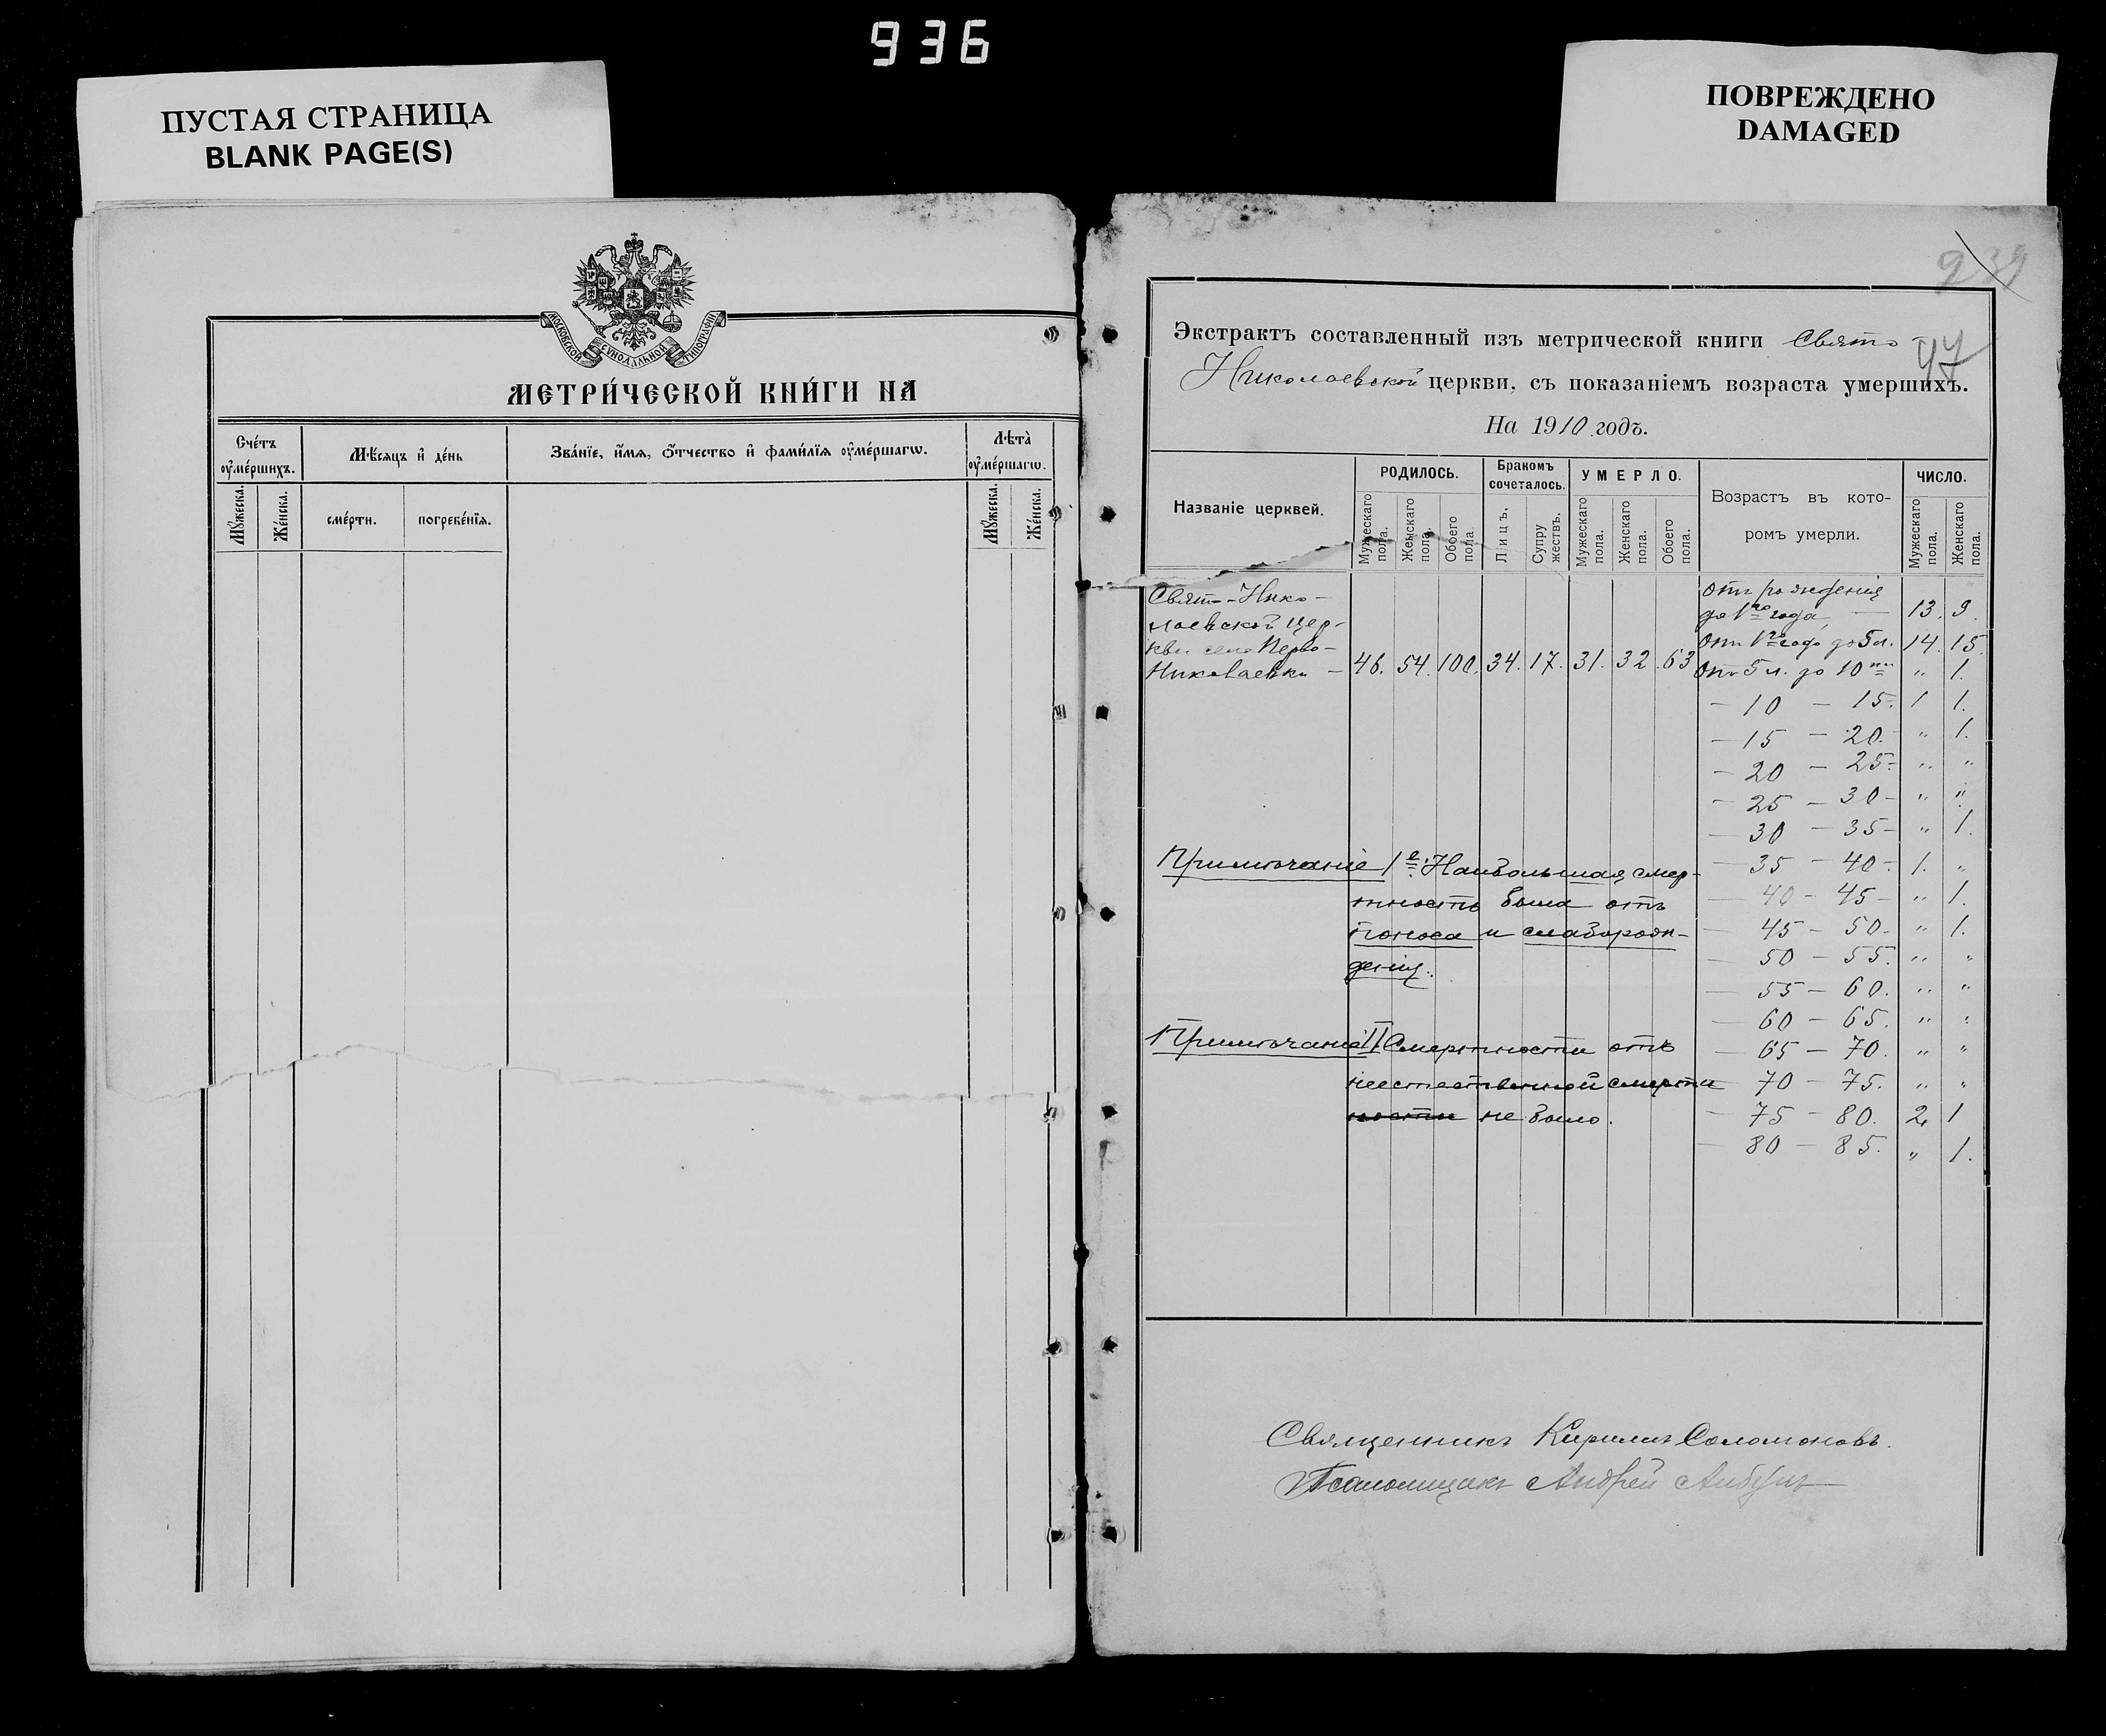 936
ПУСТАЯ СТРАНИЦА
BLANK PAGE(S)
ПОВРЕЖДЕНО
DAMAGED
МОСКОВСКОЙ СѴНОДАЛЬНОЙ ТИПОГРАФІИ
МЕТРИ́ЧЕСКОЙ КНИ́ГИ НА
Сче́тъ ᲂу҆ме́ршихъ.
Мѣ́сяцъ и҆ де́нь
Зва́нїе, и҆́мѧ, ѻ҆́тчество и҆ фами́лїѧ ᲂу҆ме́ршагѡ.
Лѣ́та ᲂу҆ме́ршагѡ.
Мꙋ́жеска.
Же́нска.
сме́рти.
погребе́нїѧ.
Мꙋ́жеска.
Же́нска.
239
97
Экстрактъ составленный изъ метрической книги Свято-
Николаевской церкви, съ показаніемъ возраста умершихъ.
На 1910 годъ.
Названіе церквей.
РОДИЛОСЬ.
Бракомъ сочеталось.
УМЕРЛО.
Возрастъ въ кото-
ромъ умерли.
ЧИСЛО.
Мужескаго пола.
Женскаго пола.
Обоего пола.
Лицъ.
Супружествъ.
Мужескаго пола.
Женскаго пола.
Обоего пола.
Мужескаго пола.
Женскаго пола.
Свято-Нико-
лаевской цер-
кви села Перво-
Николаевки — 46. 54. 100. 34. 17. 31. 32. 63
Отъ рожденія
до 1го года, — 13. 9.
Отъ 1го года до 5 л. 14. 15.
Отъ 5 л. до 10ти " 1.
— 10 — 15. 1 1.
— 15 — 20. " 1.
— 20 — 25. " "
— 25 — 30 — " "
— 30 — 35 — " 1.
— 35 — 40 — 1. "
— 40 — 45 — " 1.
— 45 — 50. " 1.
— 50 — 55. " "
— 55 — 60. " "
— 60 — 65. " "
— 65 — 70. " "
— 70 — 75. " "
— 75 — 80. 2 1
— 80 — 85. " 1.
Примѣчаніе 1е: Наибольшая смер-
тность была отъ
поноса и слаборож-
денія.
Примѣчаніе II Смертности отъ
неестественной смерти
ности не было.
Священникъ Кириллъ Соломоновъ.
Псаломщикъ Андрей